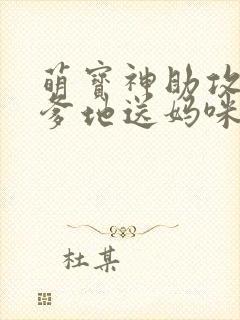 萌宝神助攻
爹地送妈咪
杜某